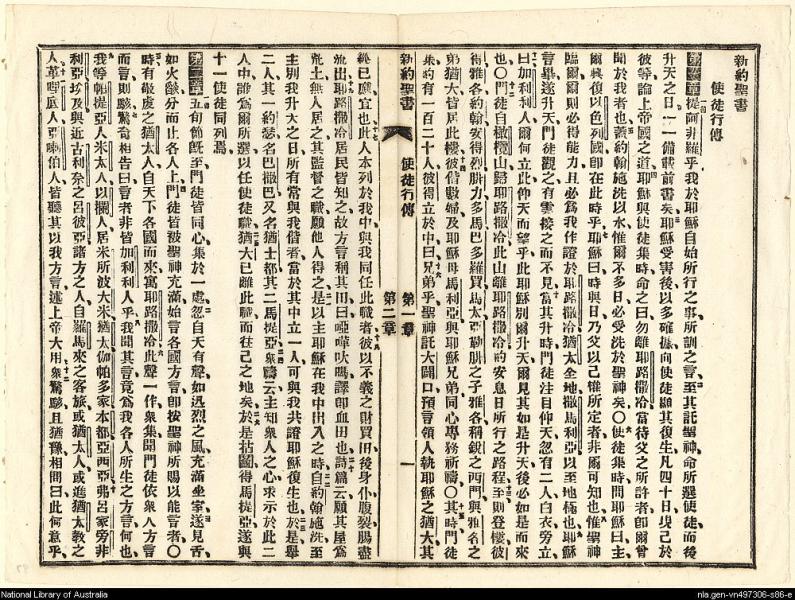 新約聖書
使徒行傳
第一章 提阿非羅乎我於耶穌自始所行之事所訓之言至其託聖神命所選使徒而後
升天之日一一備載前書矣耶穌受害後以多確據向使徒顯其復生凡四十日現己於
彼等論上帝國之道耶穌與使徒集時命之曰勿離耶路撒冷當待父之所許者卽爾曾
聞於我者也蓋約翰施洗以水惟爾不多日必受洗於聖神矣〇使徒集時問耶穌曰主
爾興復以色列國卽在此時乎耶穌曰時與日乃父以己權所定者非爾可知也惟聖神
臨爾爾則必得能力且必爲我作證於耶路撒冷猶太全地撒馬利亞以至地極也耶穌
言畢遂升天門徒觀之有雲接之而不見當其升時門徒注目仰天忽有二人白衣旁立
曰加利利人爾何立此仰天而望乎此耶穌別爾升天爾見其如是升天後必如是而來
也〇門徒自橄欖山歸耶路撒冷此山離耶路撒冷約安息日所行之路程至則登樓彼
得雅各約翰安得烈腓力多馬巴多羅買馬太亞勒腓之子雅各稱銳之西門與雅各之
弟猶大皆居此樓彼偕數婦及耶穌母馬利亞與耶穌兄弟同心專務祈禱〇其時門徒
集約有一百二十人彼得立於中曰兄弟乎聖神託大闢口預言領人執耶穌之猶大其
新約聖書 使徒行傳 第一章 第二章 一
經已應宜也此人本列於我中與我同任此職者彼以不義之財買田後身仆腹裂腸盡
流出耶路撒冷居民皆知之故方言稱其田曰啞革大嗎譯卽血田也詩篇云願其屋爲
荒土無人居之其監督之職願他人得之是以主耶穌在我中出入之時自約翰施洗至
主別我升天之日所有常與我偕者當於其中立一人可與我共證耶穌復生也於是舉
二人其一約瑟名巴撒巴又名猶士都其二馬提亞衆禱云主知衆人之心求示於此二
人中誰爲爾所選以任使徒職猶大已離此職而往己之地矣於是拈鬮得馬提亞遂與
十一使徒同列焉
第二章 五旬節旣至門徒皆同心集於一處忽自天有聲如迅烈之風充滿坐室遂見舌
如火歧分而止各人上門徒皆被聖神充滿始言各國方言卽按聖神所賜以能言者〇
時有敬虔之猶太人自天下各國而來寓耶路撒冷此聲一作衆集聞門徒依衆人方言
而言則駭驚奇相告曰言者非皆加利利人乎我聞其言竟爲我各人所生之方言何也
我等帕提亞人米太人以攔人居米所波大米猶太加帕多家本都亞西亞弗呂家旁非
利亞埃及與近古利奈之呂彼亞諸方之人自羅馬來之客旅或猶太人或進猶太教之
人革哩底人亞喇伯人皆聽其以我方言述上帝大用衆驚駭且猶豫相問曰此何意乎
National Library of Australia
nla.gen-vn497306-s86-e